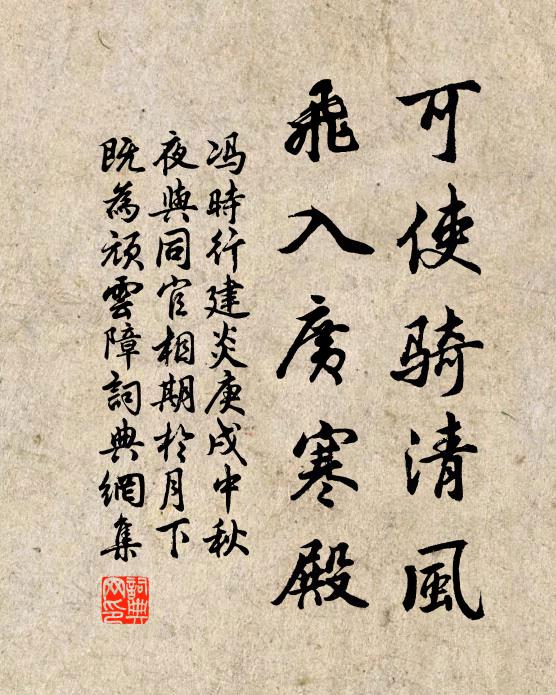 可使骑清風
飛入廣寒殿
冯時行建炎庚戌中秋
夜與同官相期於月下
既為頑雲障詞典網集
詞典网印